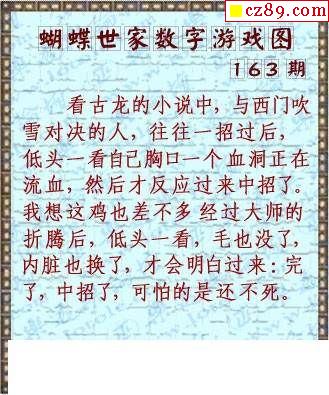 cz89.com
蝴蝶世家数字游戏图
163期
看古龙的小说中，与西门吹
雪对决的人，往往一招过后，
低头一看自己胸口一个血洞正在
流血，然后才反应过来中招了。
我想这鸡也差不多经过大师的
折腾后，低头一看，毛也没了，
内脏也换了，才会明白过来：完
了，中招了，可怕的是还不死。